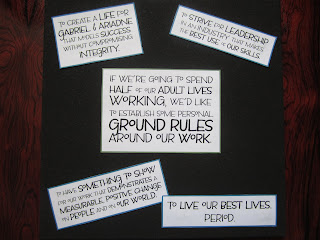 TO CREATE A LIFE FOR
GABRIEL & ARIADNE
THAT MODELS SUCCESS
WITHOUT COMPROMISING
INTEGRITY.
TO STRIVE FOR LEADERSHIP
IN AN INDUSTRY THAT MAKES
THE BEST USE OF OUR SKILLS.
IF WE'RE GOING TO SPEND
HALF OF OUR ADULT LIVES
WORKING, WE'D LIKE
TO ESTABLISH SOME PERSONAL
GROUND RULES
AROUND OUR WORK.
TO HAVE SOMETHING TO SHOW
FOR OUR WORK THAT DEMONSTRATES A
MEASURABLE, POSITIVE CHANGE
ON PEOPLE AND ON OUR WORLD.
TO LIVE OUR BEST LIVES.
PERIOD.